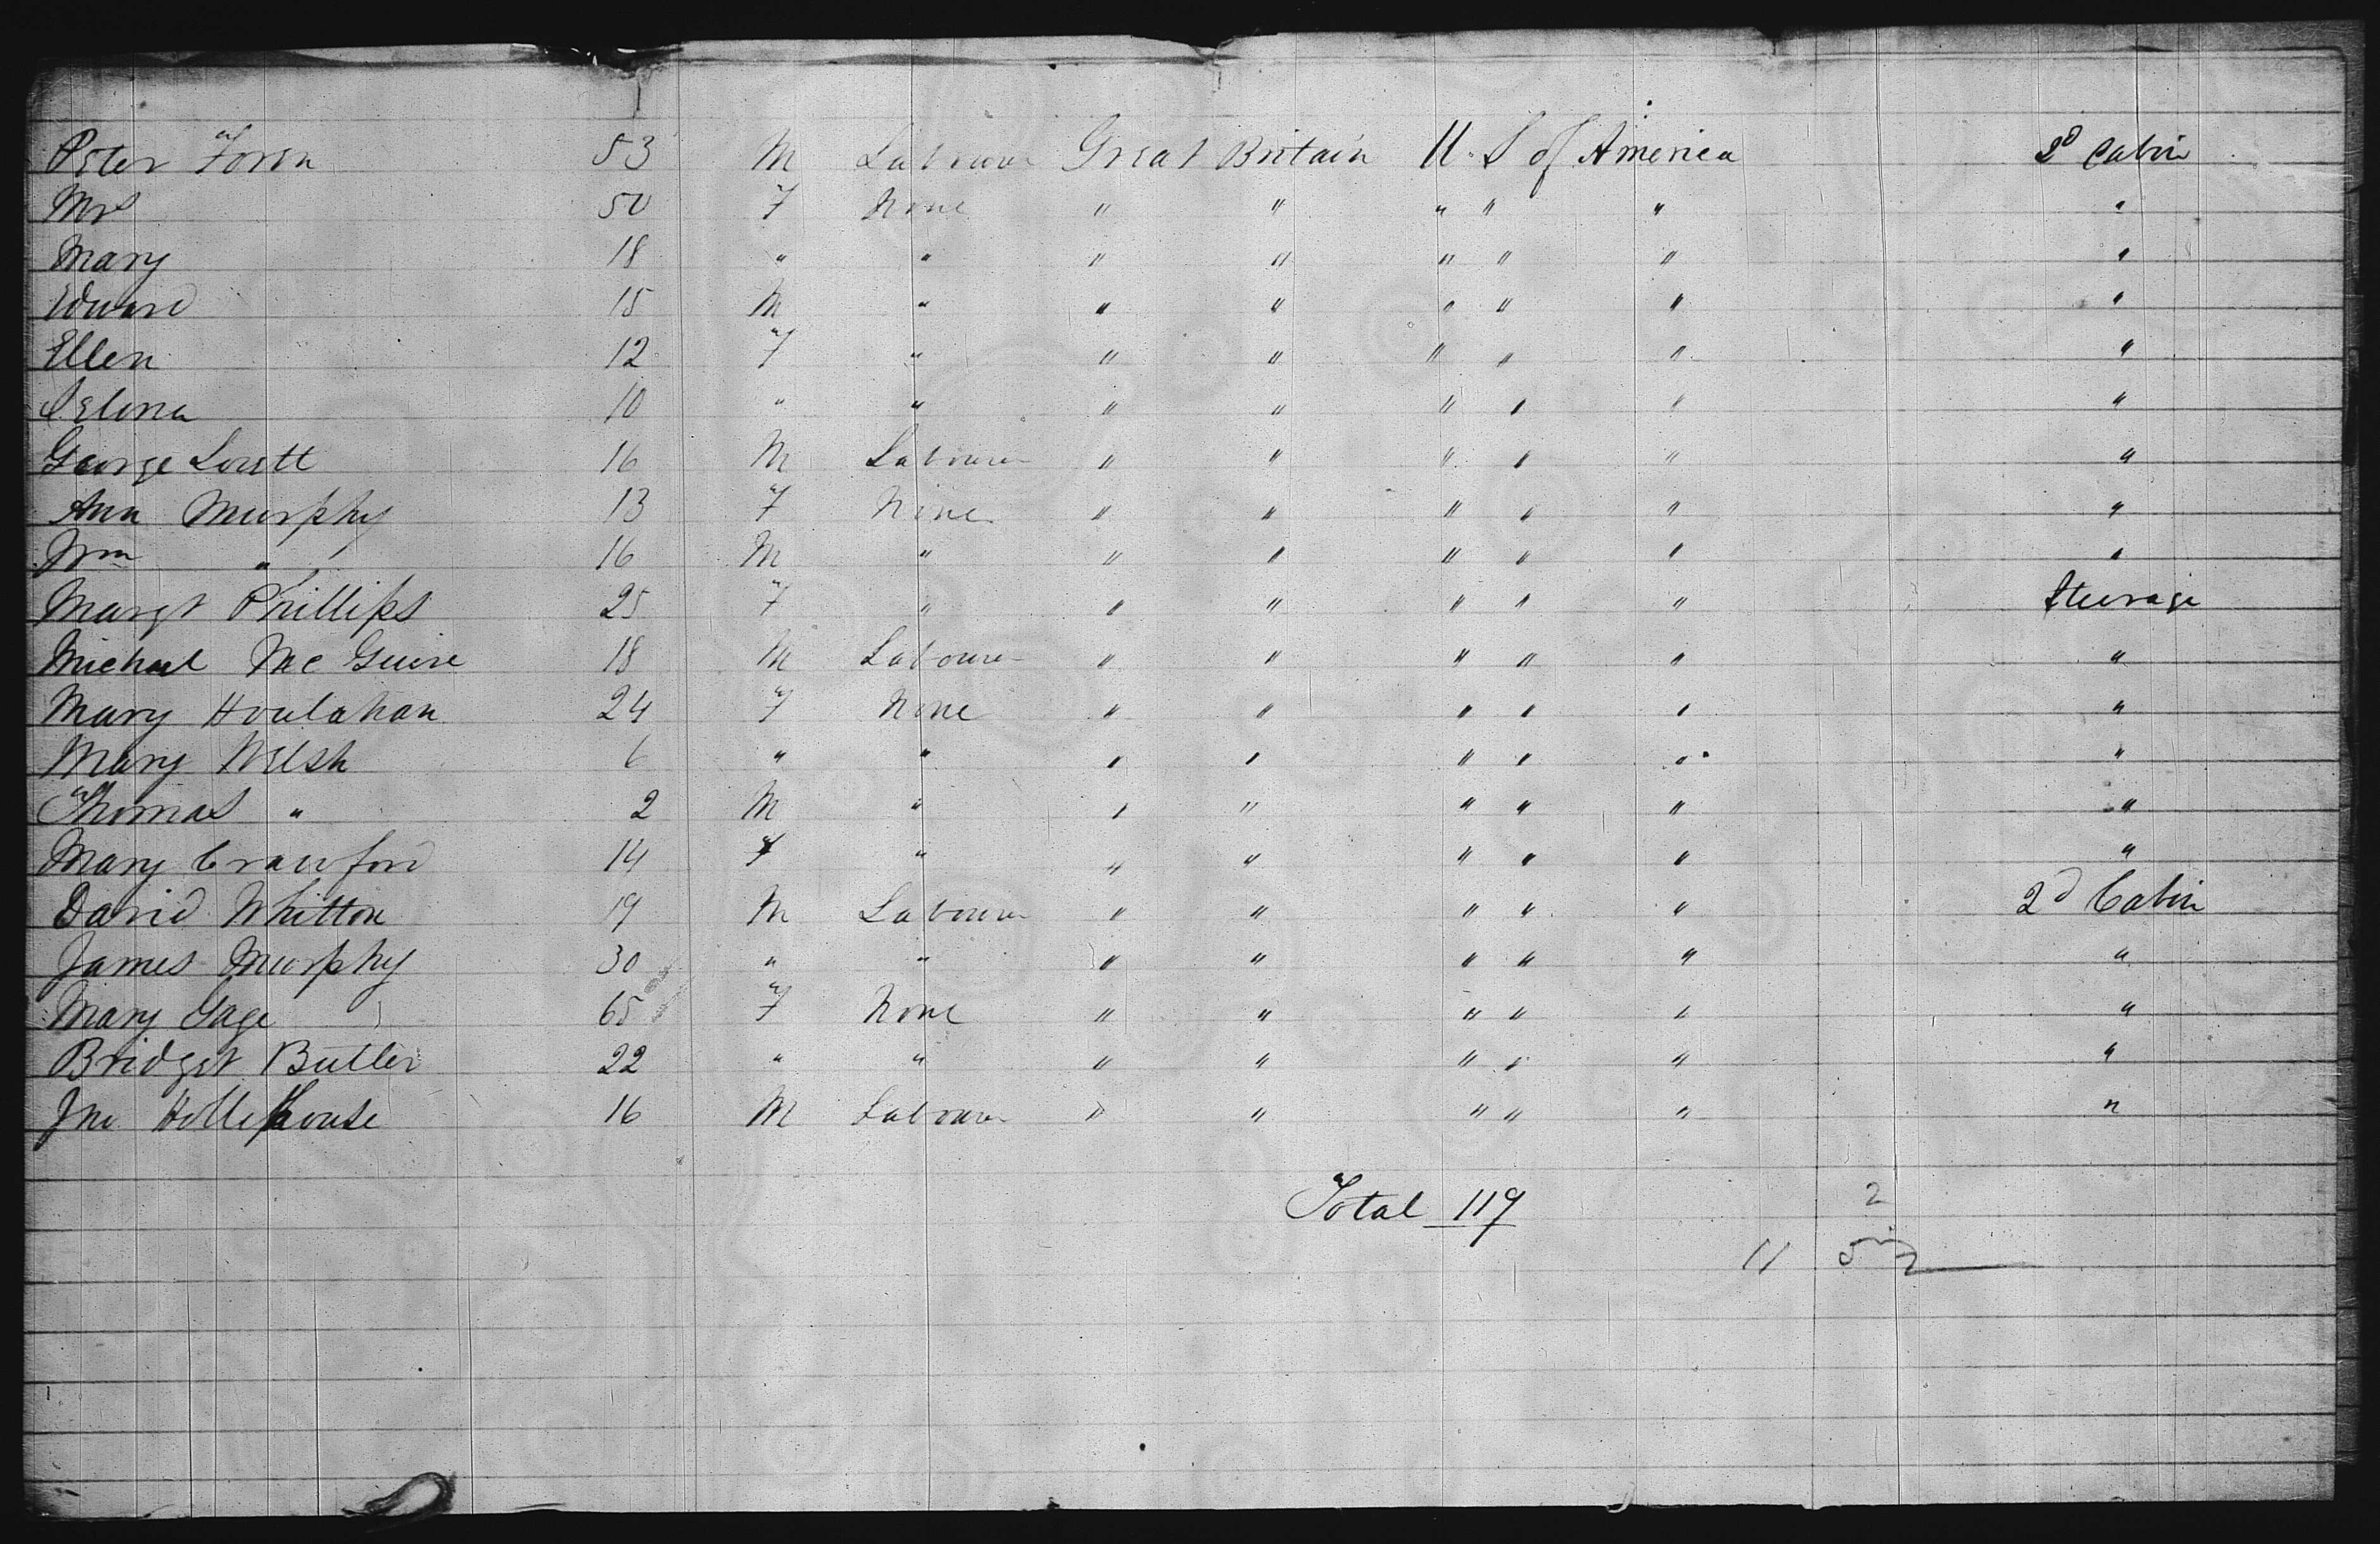 Peter Foren 53 M Labourer Great Britain U. S of America 2d Cabin
Mrs 50 F None " " " " " "
Mary 18 " " " " " " " "
Edward 15 M " " " " " " "
Ellen 12 F " " " " " " "
Selina 10 " " " " " " " "
George Lovett 16 M Labourer " " " " " "
Ann Murphy 13 F None " " " " " "
Wm " 16 M " " " " " " "
Margt Phillips 25 F " " " " " " Steerage
Michael Mc Guire 18 M Labourer " " " " " "
Mary Houlahan 24 F None " " " " " "
Mary Welsh 6 " " " " " " " "
Thomas " 2 M " " " " " " "
Mary Crawford 14 F " " " " " " "
David Whitton 19 M Labourer " " " " " 2d Cabin
James Murphy 30 " " " " " " " "
Mary Gage 65 F None " " " " " "
Bridget Butler 22 " " " " " " " "
Jno Hollishouse 16 M Labourer " " " " " "
Total 119
2
11